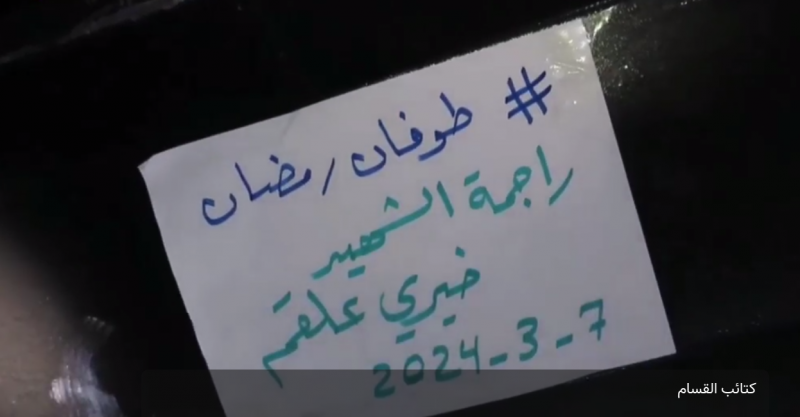 # طوفان رمضان
راجمة الشهيد
خيري علقم
2024-3-7
كتائب القسام